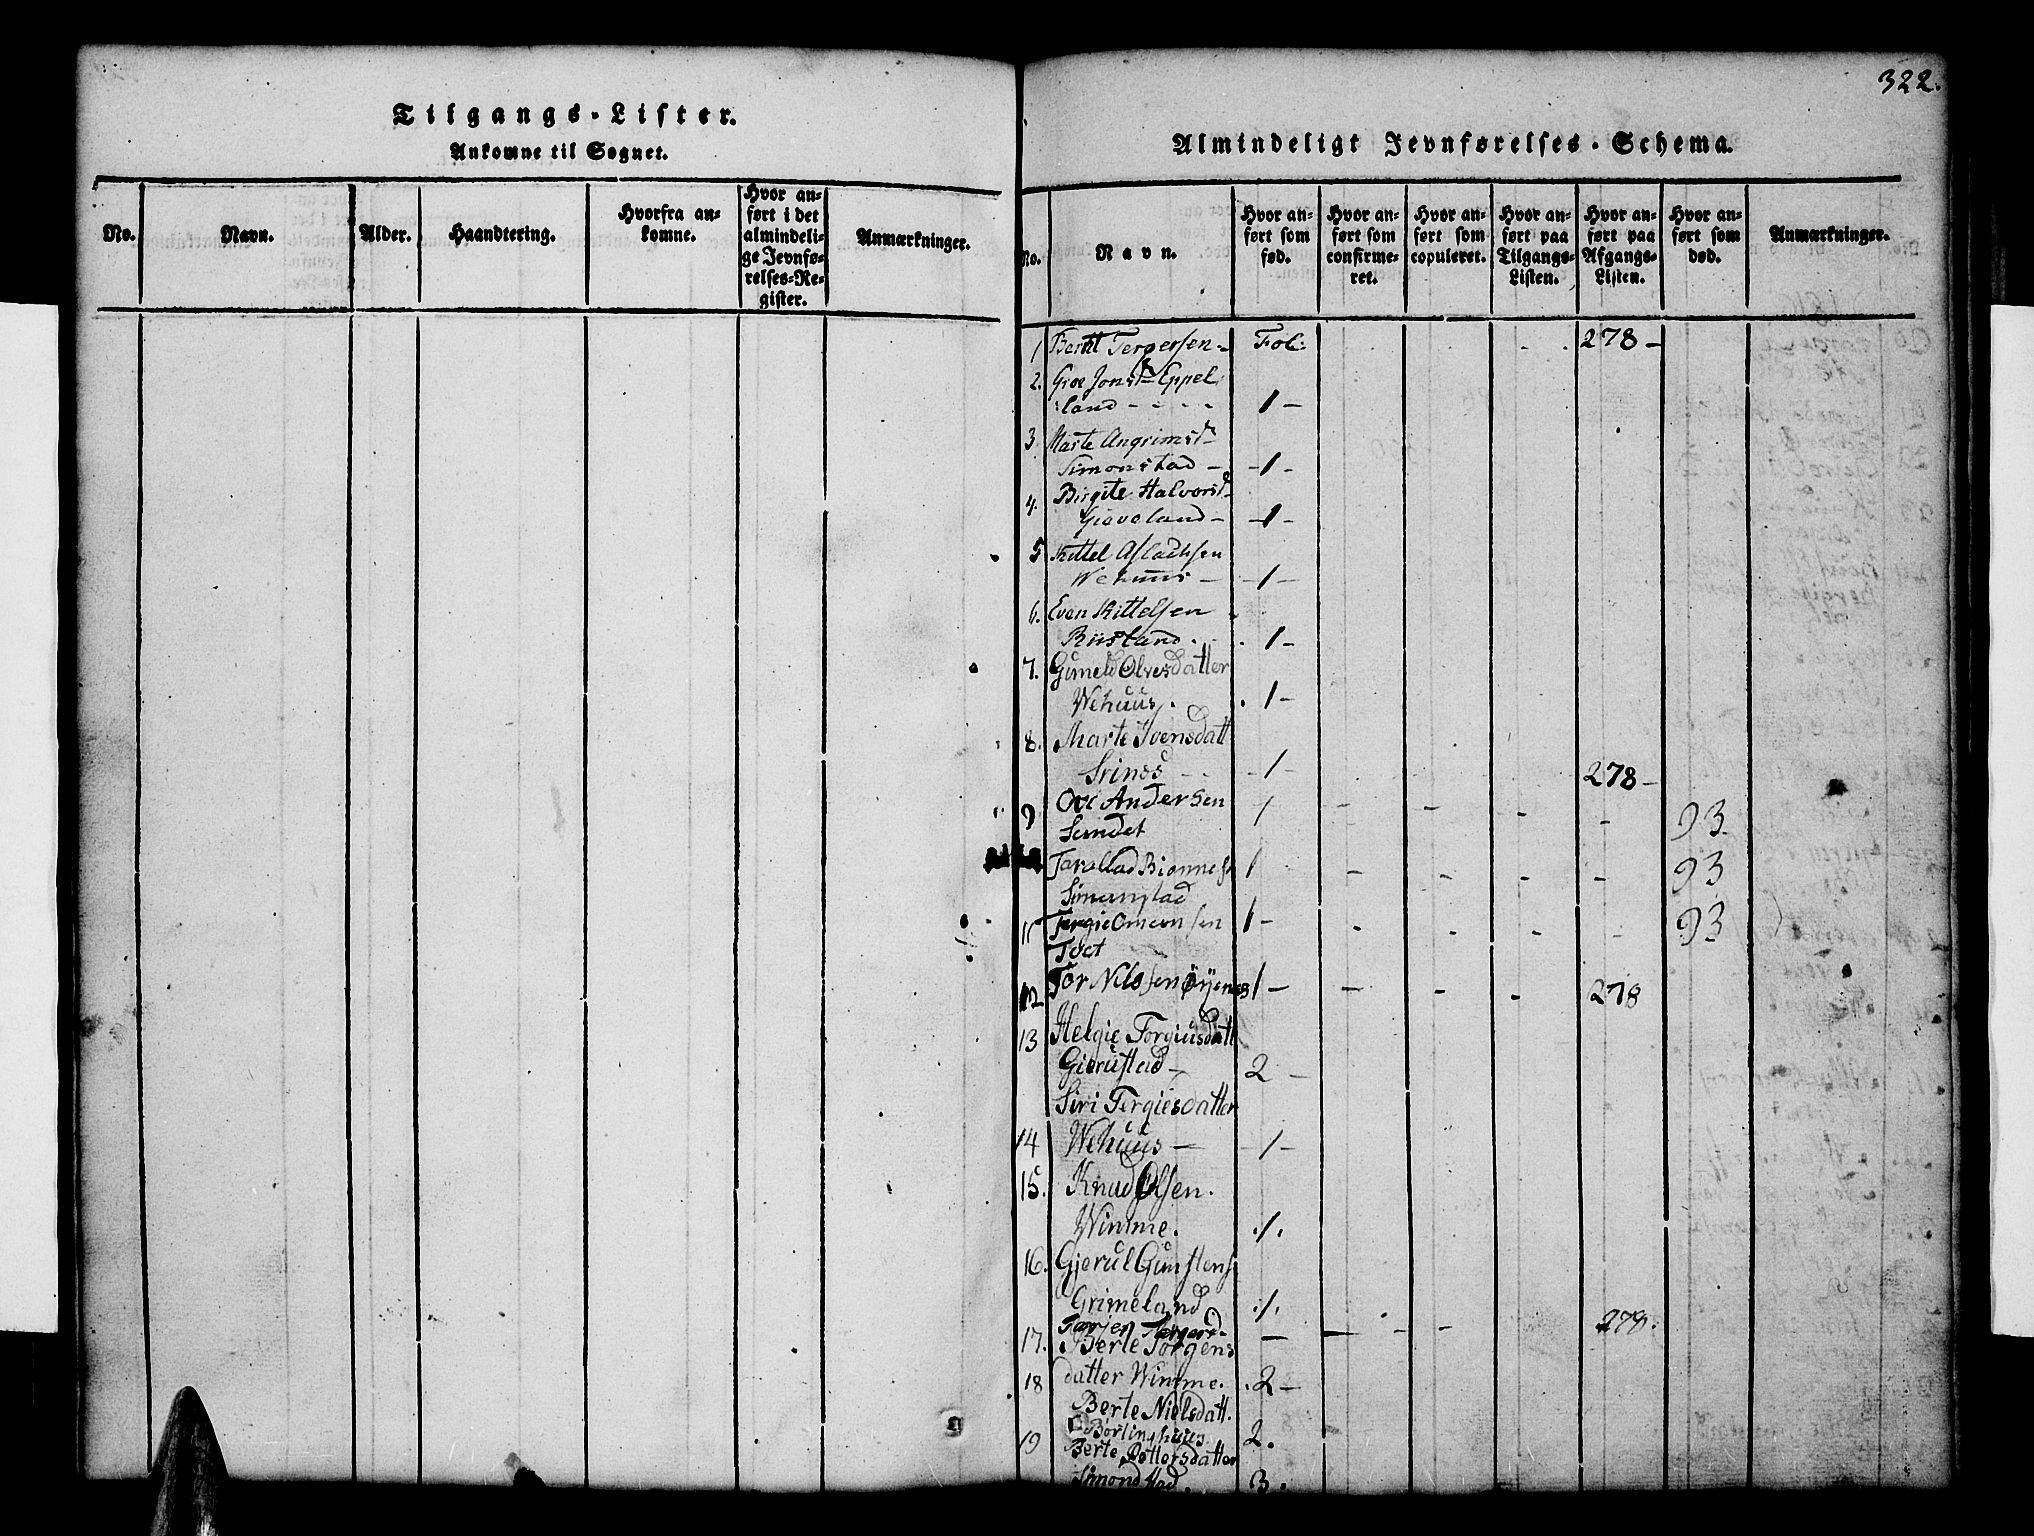 Tilgangs-Lister.
Ankomne til Sognet.
No.
Navn.
Alder.
Haandtering.
Hvorfra an-
komne.
Hvor an-
ført i det
almindeli-
ge Jevnfø-
relses-Re-
gister.
Anmærkninger.
322.
Almindeligt Jevnførelses-Schema.
No.
Navn.
Hvor an-
ført som
fød.
Hvor an-
ført som
confirme-
ret.
Hvor an-
ført som
copuleret.
Hvor an-
ført paa
Tilgangs-
Listen.
Hvor an-
ført paa
Afgangs-
Listen.
Hvor an-
ført som
død.
Anmærkninger.
1 Berht Tergersen - Fol: 278 -
2. Groe Jonsd. Eppel
land - - - - 1 -
3. Marte Angrimsd.
Simonstad - - 1 -
4. Birgite Halvorsd.
Gieveland - - 1 -
5 Kittel Aslachsen
Wehuus - - 1 -
6. Even Kittelsen
Riisland. . 1 -
7. Guneld Olvesdatter
Wehuus. . 1 -
8. Marte Ivensdatt
- 1 - 278 -
9 Ove Andersen / - - - - 93
Sundet
Simonstad 1 - - - - 93
11 Tergie Omunsen 1 - - - - - 93
Toet
12 Tor Nilssen Øÿenes 1 - - - - 278
13 Helgie Torgiusdatt
Gierustad - 2 -
Siri Tergiesdatter
14 Wehuus - - 1 -
15. Knud Olsen.
Wimme. ./.
16. Gjerul Gunstens
Grimeland ./.
- - - - 278.
17. Berte Torgens
18 datter Wimme. . 2 -
Berte Nielsdatt.
Børlinghuus 2.
19 Berte Pettersdatter
Simonstad. 3.